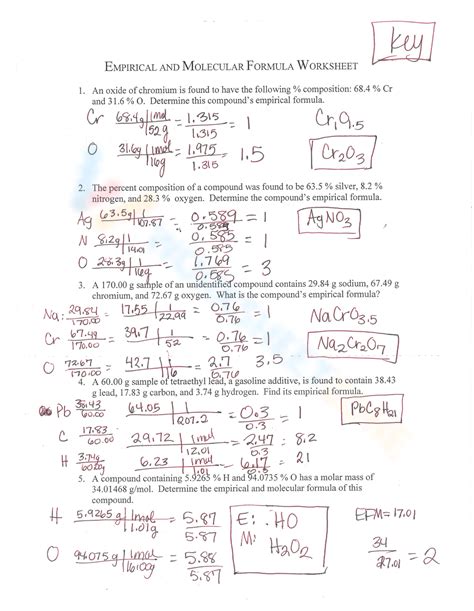 key
EMPIRICAL AND MOLECULAR FORMULA WORKSHEET
1. An oxide of chromium is found to have the following % composition: 68.4 % Cr
and 31.6 % O. Determine this compound's empirical formula.
Cr 68.4g | 1mol / 52g = 1.315 / 1.315 = 1 Cr1O1.5
O 31.6g | 1mol / 16g = 1.975 / 1.315 = 1.5 Cr2O3
2. The percent composition of a compound was found to be 63.5 % silver, 8.2 %
nitrogen, and 28.3 % oxygen. Determine the compound's empirical formula.
Ag 63.5g | 1 / 107.87 = 0.589 / 0.585 = 1 AgNO3
N 8.2g | 1 / 14.01 = 0.585 / 0.585 = 1
O 28.3g | 1 / 16g = 1.769 / 0.585 = 3
3. A 170.00 g sample of an unidentified compound contains 29.84 g sodium, 67.49 g
chromium, and 72.67 g oxygen. What is the compound's empirical formula?
Na: 29.84 / 170.00 = 17.55 | 1 / 22.99 = 0.76 / 0.76 = 1 NaCrO3.5
Cr 67.49 / 170.00 = 39.7 | 1 / 52 = 0.76 / 0.76 = 1 Na2Cr2O7
O 72.67 / 170.00 = 42.7 | 1 / 16 = 2.7 / 0.76 3.5
4. A 60.00 g sample of tetraethyl lead, a gasoline additive, is found to contain 38.43
g lead, 17.83 g carbon, and 3.74 g hydrogen. Find its empirical formula.
Pb 38.43 / 60.00 64.05 | 1 / 207.2 = 0.3 / 0.3 = 1 PbC8H21
C 17.83 / 60.00 29.72 | 1mol / 12.01 = 2.47 / 0.3 = 8.2
H 3.74g / 60.00 6.23 | 1mol / 1.01 = 6.17 / .3 = 21
5. A compound containing 5.9265 % H and 94.0735 % O has a molar mass of
34.01468 g/mol. Determine the empirical and molecular formula of this
compound.
H 5.9265g | 1mol / 1.01g = 5.87 / 5.87 E: HO EFM = 17.01
M: H2O2
O 94.075g | 1mol / 16.00g = 5.88 / 5.87 34 / 17.01 = 2